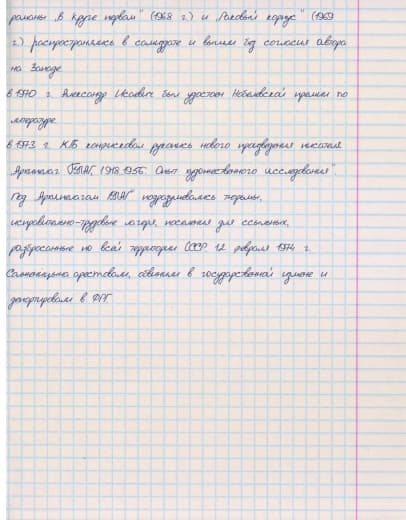 романы „В круге первом" (1968 г.) и „Раковый корпус" (1969
г.) распространялись в самиздате и вышли без согласия автора
на Западе
В 1970 г. Александр Исаевич был удостоен Нобелевской премии по
литературе
В 1973 г. КГБ конфисковал рукопись нового произведения писателя
„Архипелаг ГУЛАГ, 1918-1956. Опыт художественного исследования".
Под „Архипелагом ГУЛАГ" подразумевались тюрьмы,
исправительно-трудовые лагеря, поселения для ссыльных,
разбросанные по всей территории СССР 12 февраля 1974 г.
Солженицына арестовали, обвинили в государственной измене и
депортировали в ФРГ